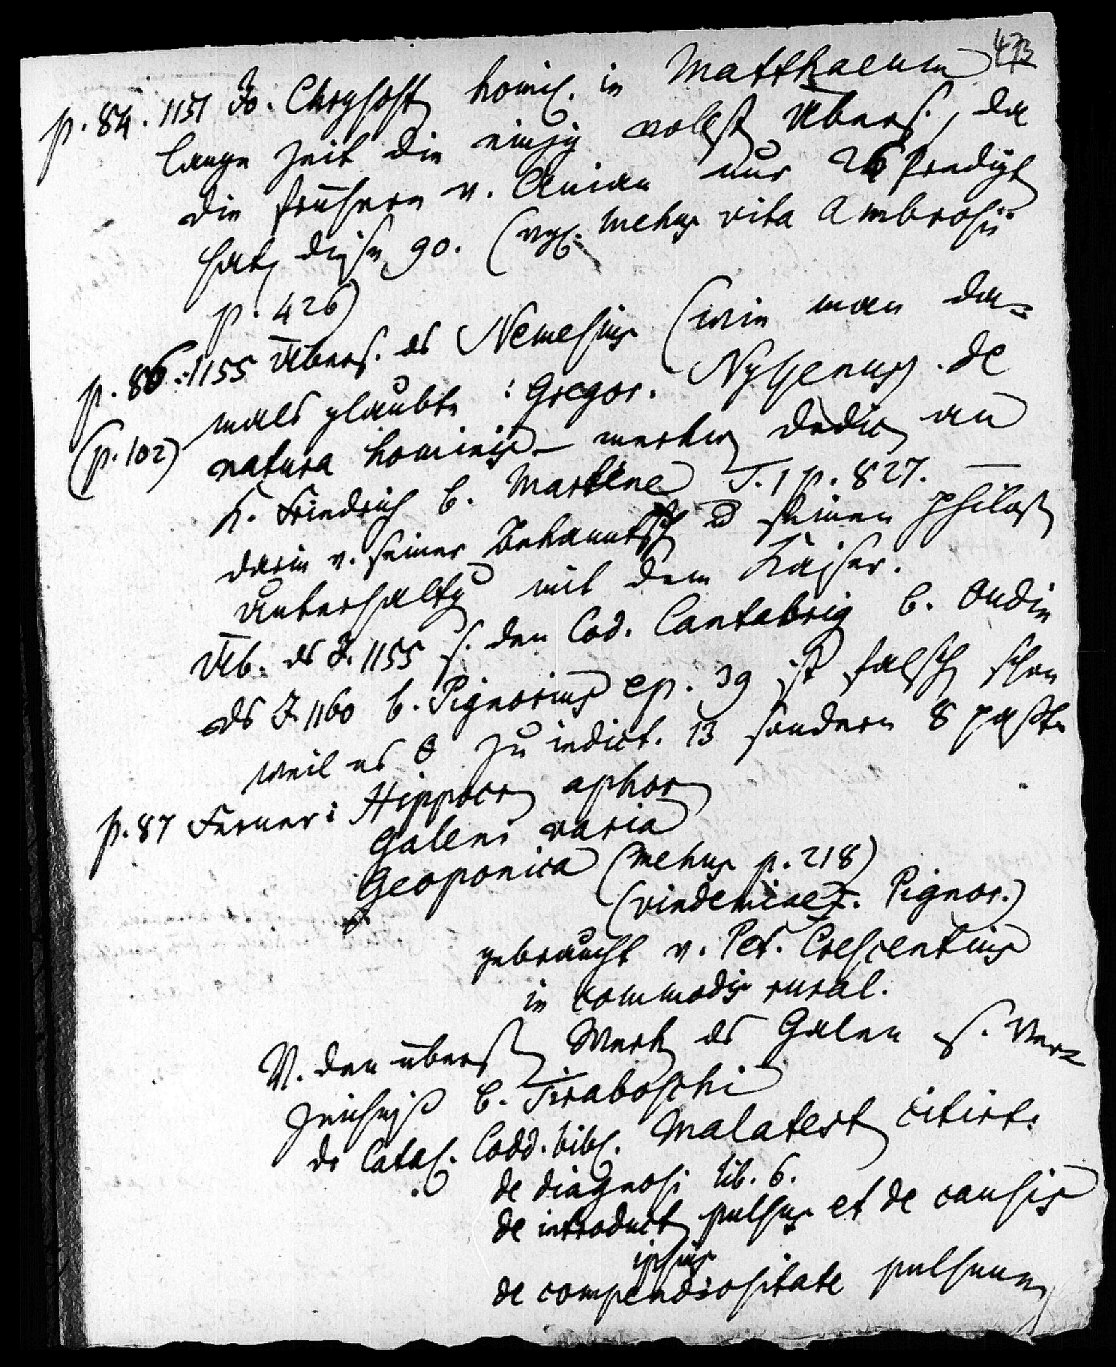 473
p. 84. 1151 Jo. Chrysost homil. in Matthaeum
lange Zeit die einzig vollst Übers., da
die frühere v. Anian nur 26 Predigt
hat, diese 90. (vgl. Mehus vita Ambrosii
p. 426)
p. 86. 1155 Übers. ds Nemesius (wie man da=
mals glaubte: Gregor. Nyssenus) de
(p. 102) natura hominis – merkw dedic an
K. Friedrich b. Martene T. 1 p. 827. —
darin v. seiner Bekanntsch u seinen philos
Unterhaltg mit dem Kaiser.
Üb. ds J. 1155 s. den Cod. Cantabrig b. Oudin
ds J. 1160 b. Pignorius ep. 39 ist falsch schon
weil es zu indict. 13 sondern 8 passt
p. 87 Ferner: Hippocr aphor
Galeni varia
Geoponica (Mehus p. 218)
(vindemiae s. Pignor.)
gebraucht v. Pet. Crescentius
in commodis rural.
V. den übers Werk ds Galen s. Ver=
zeichniß b. Tiraboschi
de Catal. Codd. bibl. Malatest citirt:
de diagnosi lib. 6.
de introduct pulsus et de causis
ipsius
de compendiositate pulsuum